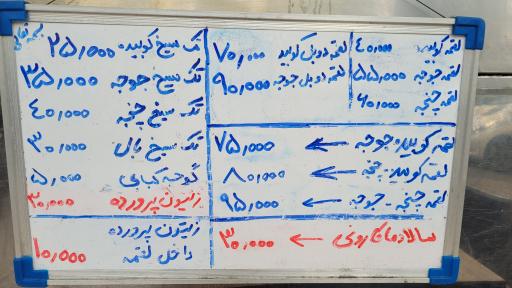 لقمه کوبیده: ۴۰,۰۰۰
لقمه جوجه ۵۵,۰۰۰
لقمه چنجه ۶۰,۰۰۰
لقمه دوبل کوبیده ۷۰,۰۰۰
لقمه دوبل جوجه ۹۰,۰۰۰
لقمه کوبیده-جوجه ← ۷۵,۰۰۰
لقمه کوبیده-چنجه ← ۸۰,۰۰۰
لقمه چنجه-جوجه ← ۹۵,۰۰۰
سالاد ماکارونی ← ۳۰,۰۰۰
تک سیخ کوبیده: ۲۵,۰۰۰
تک سیخ جوجه ۳۵,۰۰۰
تک سیخ چنجه ۴۰,۰۰۰
تک سیخ بال ۳۰,۰۰۰
گوجه کبابی ۵,۰۰۰
زیتون پرورده ۳۰,۰۰۰
زیتون پرورده
داخل لقمه ۱۰,۰۰۰